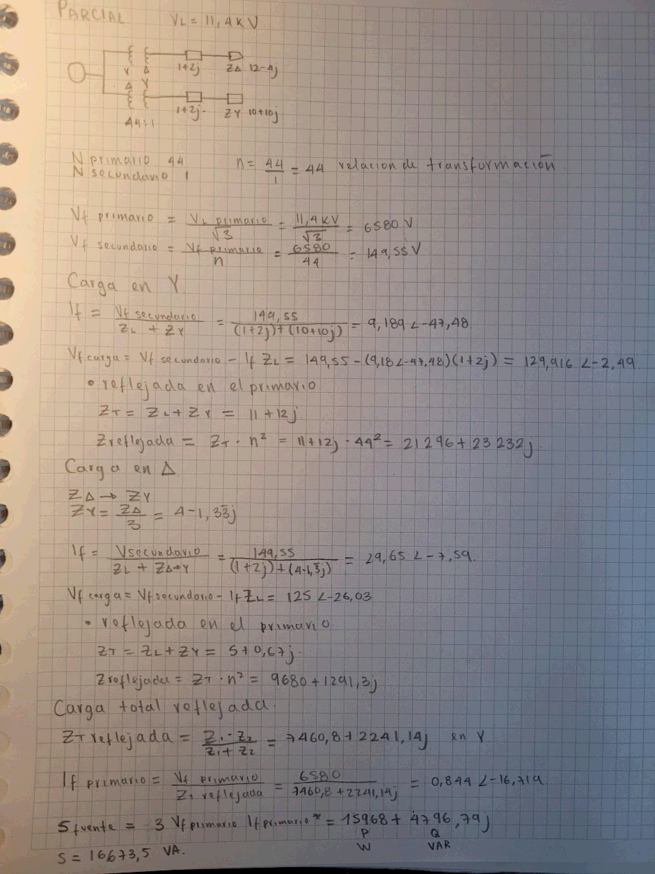 PARCIAL VL = 11,4 KV
1+2j ZΔ 12-4j
Y Δ
Δ Y
1+2j ZY 10+10j
44:1
N primario 44 n = 44/1 = 44 relacion de transformación
N secundario 1
Vf primario = VL primario/√3 = 11,4 KV/√3 = 6580 V
Vf secundario = Vf primario/n = 6580/44 = 149,55 V
Carga en Y
If = Vf secundario/ZL + ZY = 149,55/(1+2j)+(10+10j) = 9,189 ∠-47,48
Vf carga = Vf secundario - If ZL = 149,55 - (9,18∠-47,48)(1+2j) = 129,916 ∠-2,49
• reflejada en el primario
ZT = ZL + ZY = 11+12j
Zreflejada = ZT · n² = 11+12j · 44² = 21296+23232j
Carga en Δ
ZΔ → ZY
ZY = ZΔ/3 = 4-1,33j
If = Vsecundario/ZL + ZΔ→Y = 149,55/(1+2j)+(4-1,3j) = 29,65 ∠-7,59
Vf carga = Vf secundario - If ZL = 125 ∠-26,03
• reflejada en el primario
ZT = ZL + ZY = 5+0,67j
Zreflejada = ZT · n² = 9680+1291,3j
Carga total reflejada
ZT reflejada = Z1·Z2/Z1+Z2 = 7460,8+2241,14j en Y
If primario = Vf primario/ZT reflejada = 6580/7460,8+2241,14j = 0,844 ∠-16,719
Sfuente = 3 Vf primario If primario* = 15968 + 4796,79j
P Q
W VAR
S = 16673,5 VA.